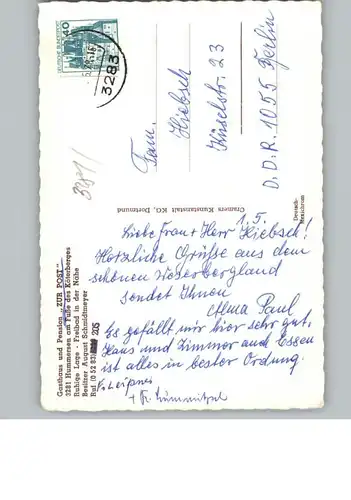 Gasthaus und Pension „ZUR POST“
3281 Hummersen am Fuße des Köterberges
Ruhige Lage - Freibad in der Nähe
Besitzer August Schmidtmeyer
Ruf (0 52 83) 205
DEUTSCHE BUNDESPOST
40
3283
3281
Fam.
Hiebsch
Käselstr. 23
D.D.R. 1055 Berlin
Cramers Kunstanstalt KG, Dortmund
1.5.
Liebe Frau + Herr Hiebsch!
Herzliche Grüße aus dem
schönen Weserbergland
sendet Ihnen
Alma Paul
Es gefällt mir hier sehr gut,
Haus und Zimmer auch Essen
ist alles in bester Ordnung.